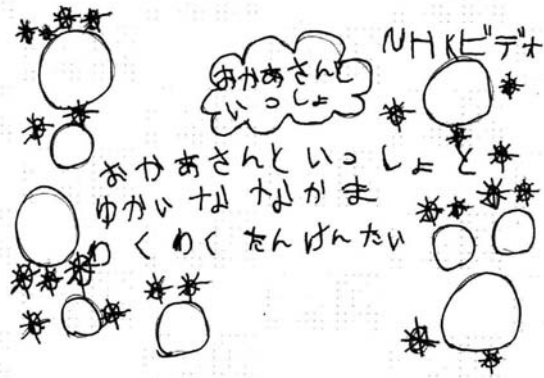 NHKビデオ
おかあさんと
いっしょ
おかあさんといっしょと
ゆかいな なかま
わくわくたんけんたい